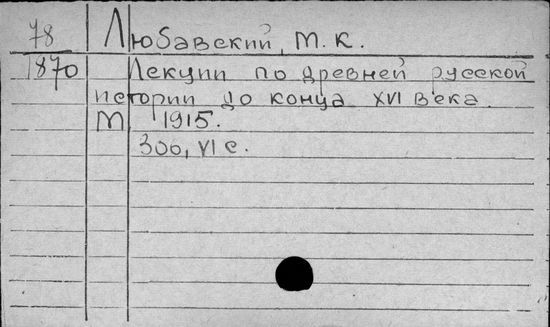 78 Любавский, М. К.
1870 Лекции по древней русской
истории до конца XVI века.
М 1915.
306, VI с.